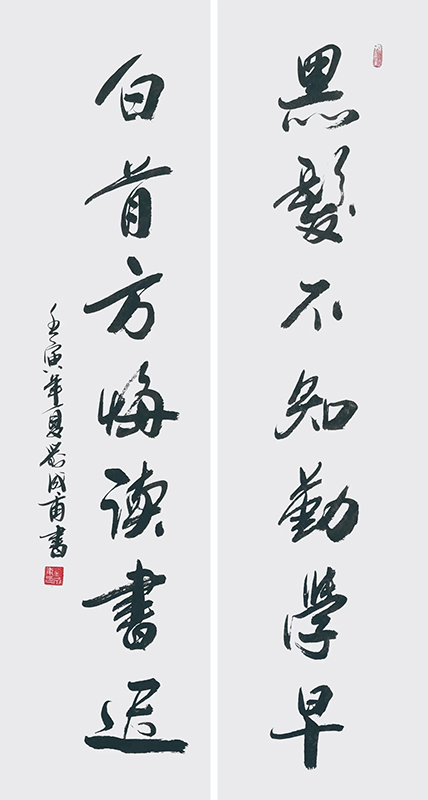 黑髮不知勤學早
白首方悔读書迟
壬寅年夏成甫書